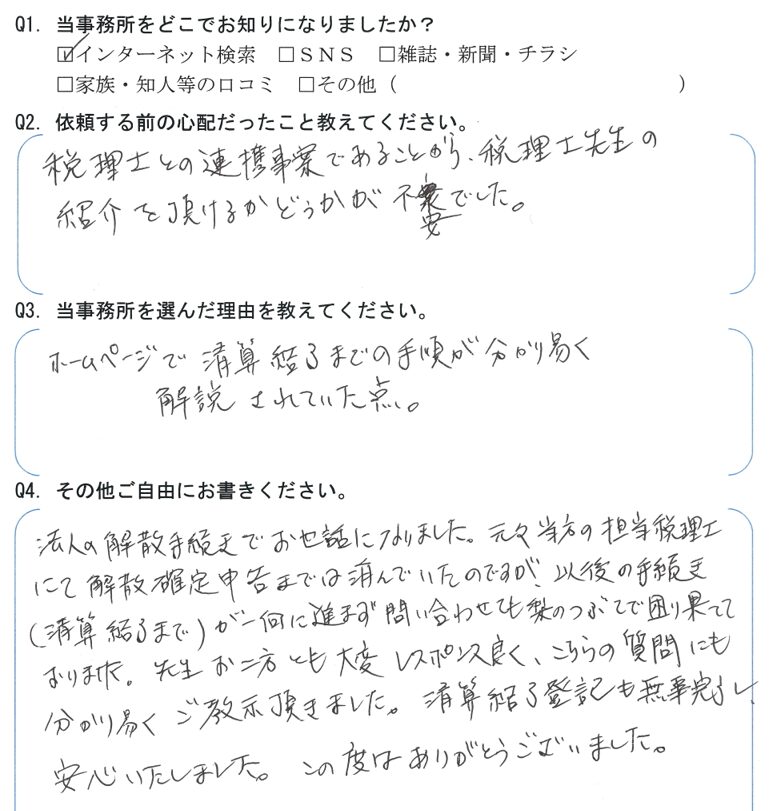 Q1. 当事務所をどこでお知りになりましたか？
☑インターネット検索 □ＳＮＳ □雑誌・新聞・チラシ
□家族・知人等の口コミ □その他（ ）
Q2. 依頼する前の心配だったこと教えてください。
税理士との連携事案であることから、税理士先生の
紹介を頂けるかどうかが不安でした。
Q3. 当事務所を選んだ理由を教えてください。
ホームページで清算結了までの手順が分かり易く
解説されていた点。
Q4. その他ご自由にお書きください。
法人の解散手続きでお世話になりました。元々当方の担当税理士
にて解散確定申告までは済んでいたのですが、以後の手続き
(清算結了まで)が一向に進まず問い合わせても梨のつぶてで困り果てて
おりました。先生お二方とも大変レスポンス良く、こちらの質問にも
分かり易くご教示頂きました。清算結了登記も無事完了し、
安心いたしました。この度はありがとうございました。